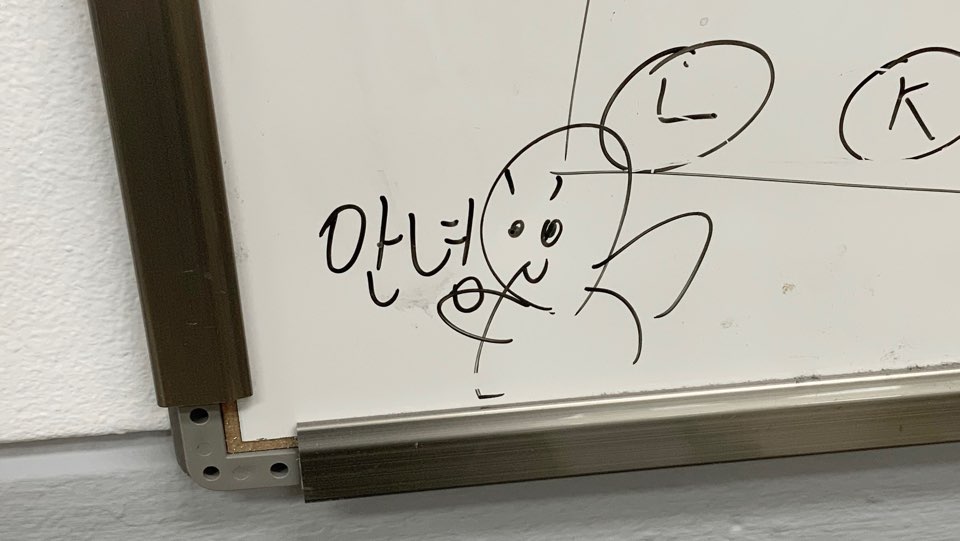 L K
안녕